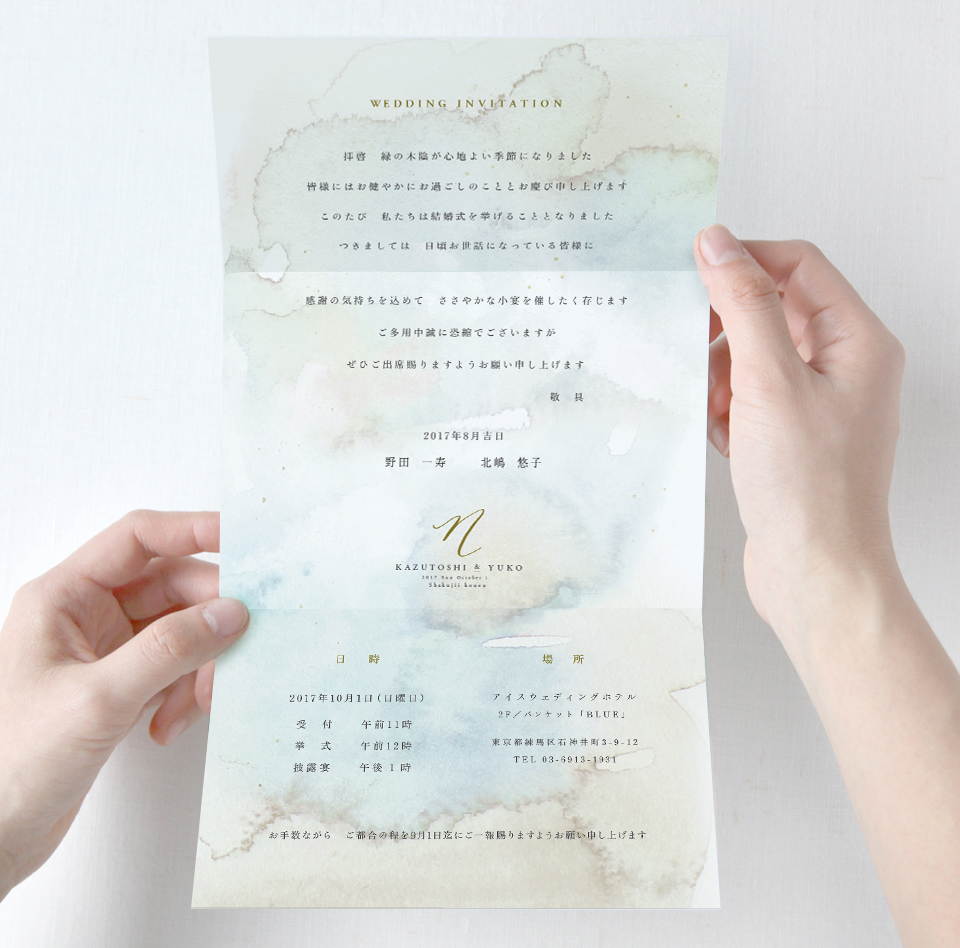 WEDDING INVITATION
拝啓　緑の木陰が心地よい季節になりました
皆様にはお健やかにお過ごしのこととお慶び申し上げます
このたび　私たちは結婚式を挙げることとなりました
つきましては　日頃お世話になっている皆様に
感謝の気持ちを込めて　ささやかな小宴を催したく存じます
ご多用中誠に恐縮でございますが
ぜひご出席賜りますようお願い申し上げます
敬　具
2017年8月吉日
野田　一寿　　北嶋　悠子
n
KAZUTOSHI & YUKO
2017 Sun October 1
Shakujii kouen
日　時
2017年10月1日（日曜日）
受　付　　午前11時
挙　式　　午前12時
披露宴　　午後 1 時
場　所
アイスウェディングホテル
2F／バンケット「BLUE」
東京都練馬区石神井町3-9-12
TEL 03-6913-1931
お手数ながら　ご都合の程を9月1日迄にご一報賜りますようお願い申し上げます